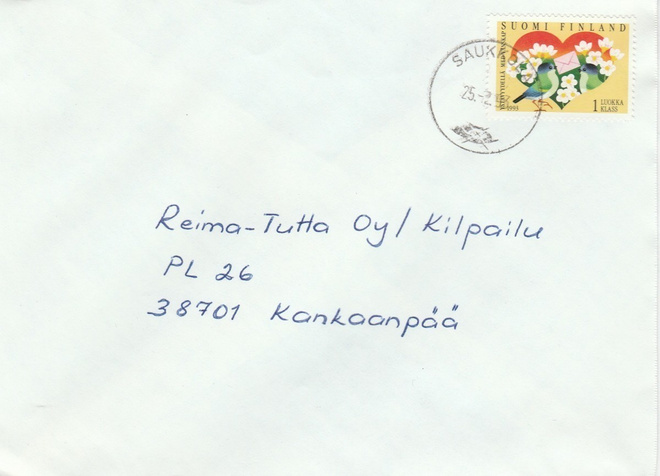 SUOMI FINLAND
YSTÄVYYDELLÄ MED VÄNSKAP
1993
1 LUOKKA
KLASS
25.
Reima-Tutta Oy/Kilpailu
PL 26
38701 Kankaanpää